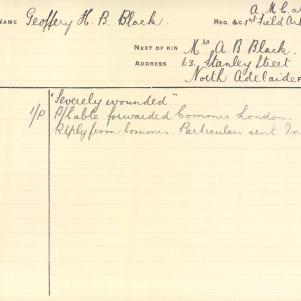 A.M.C. at
NAME Geoffery H. B. Black. REG. &C. 1st Field
NEXT OF KIN Mrs A B Black.
ADDRESS 63 Stanley Street
North Adelaide
"Severely wounded"
forwarded Commrs London.
Reply from Commrs. Particulars sent